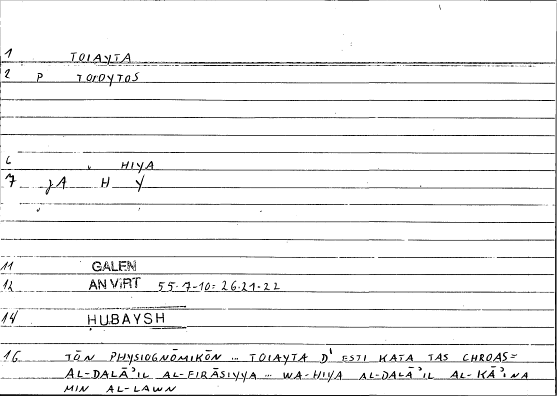 1 TOIAYTA
2 P TOIOYTOS
6 HIYA
7 ɟA H Y
11 GALEN
12 AN VIRT 55.7-10: 26.21-22
14 ḤUBAYSH
16 TŌN PHYSIOGNŌMIKŌN ... TOIAYTA D' ESTI KATA TAS CHROAS=
AL-DALĀʾIL AL-FIRĀSIYYA ... WA-HIYA AL-DALĀʾIL AL-KĀʾINA
MIN AL-LAWN